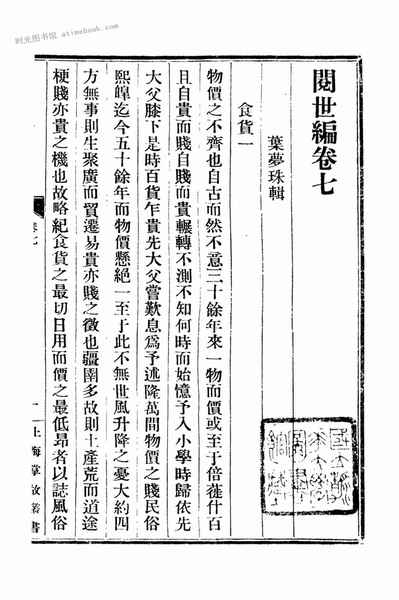 时光图书馆 atimebook.com
閱世編卷七
葉夢珠輯
食貨一
物價之不齊也自古而然不意三十餘年來一物而價或至于倍蓰什百
且自貴而賤自賤而貴輾轉不測不知何時而始憶予入小學時歸依先
大父膝下是時百貨乍貴先大父嘗歎息為予述隆萬間物價之賤民俗
熙皞迄今五十餘年而物價懸絕一至于此不無世風升降之憂大約四
方無事則生聚廣而貿遷易貴亦賤之徵也疆圉多故則土產荒而道途
梗賤亦貴之機也故略紀食貨之最切日用而價之最低昂者以誌風俗
卷七
一
上海掌故叢書